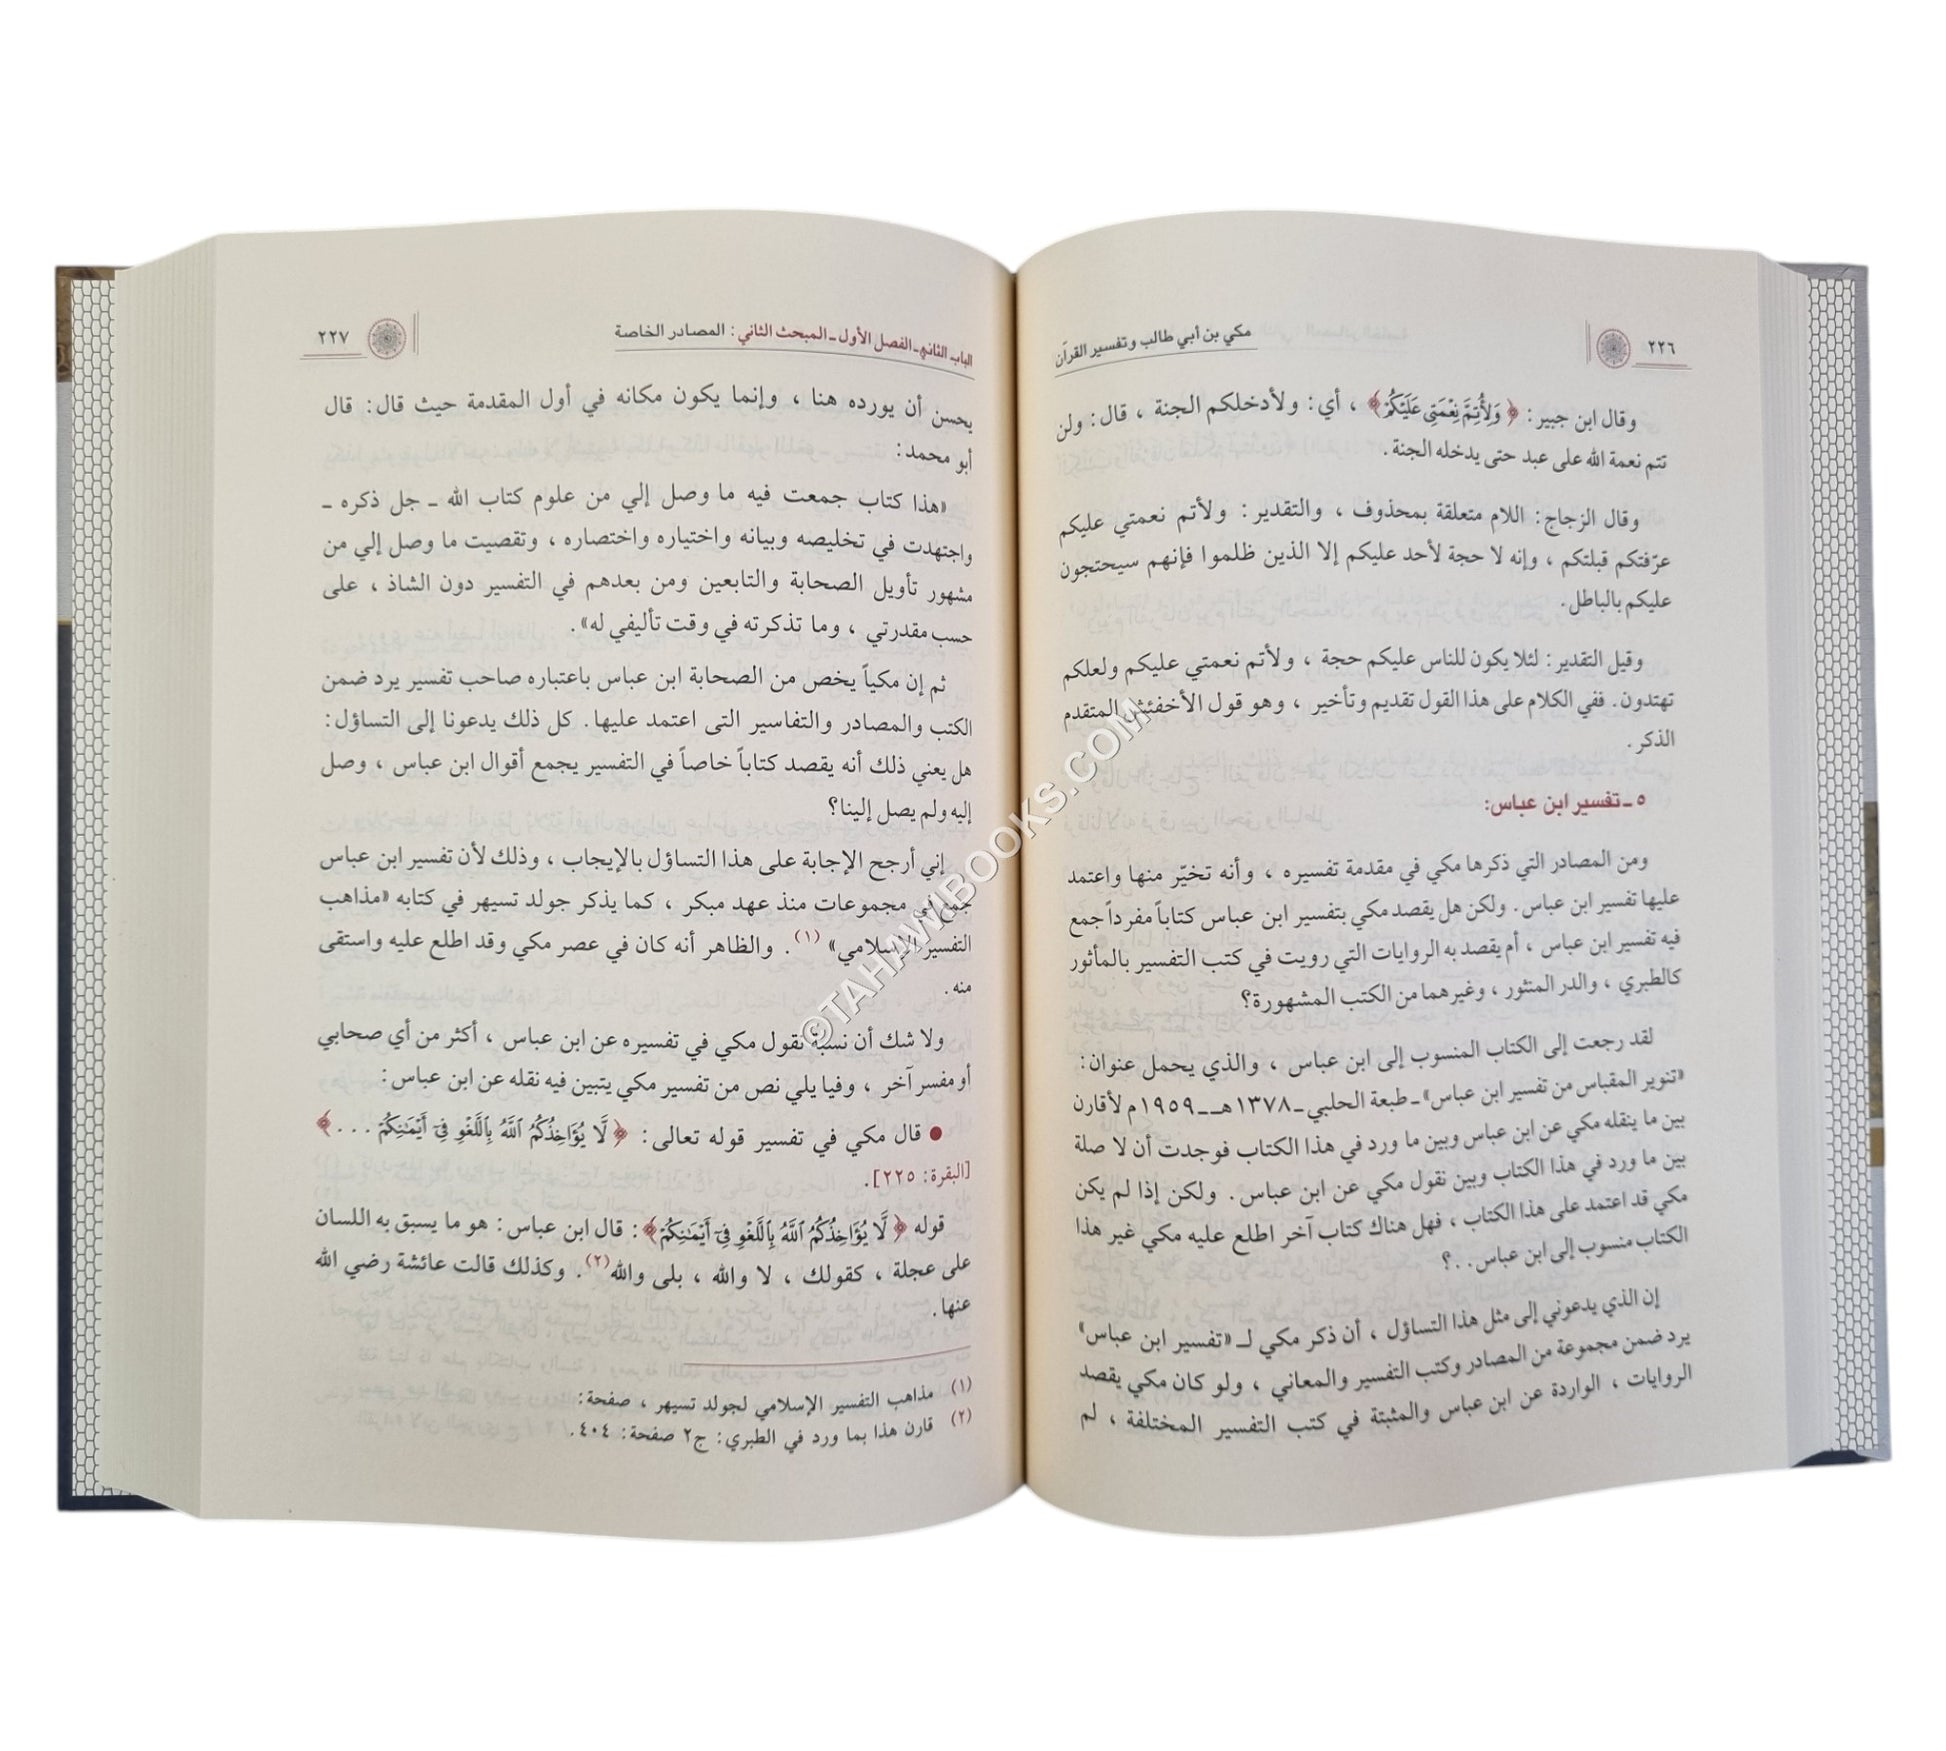 ٢٢٦
مكي بن أبي طالب وتفسير القرآن
وقال ابن جبير: ﴿وَلِأُتِمَّ نِعْمَتِى عَلَيْكُمْ﴾ ، أي: ولأدخلكم الجنة ، قال: ولن
تتم نعمة الله على عبد حتى يدخله الجنة .
وقال الزجاج: اللام متعلقة بمحذوف ، والتقدير: ولأتم نعمتي عليكم
عرّفتكم قبلتكم ، وإنه لا حجة لأحد عليكم إلا الذين ظلموا فإنهم سيحتجون
عليكم بالباطل.
وقيل التقدير: لئلا يكون للناس عليكم حجة ، ولأتم نعمتي عليكم ولعلكم
تهتدون. ففي الكلام على هذا القول تقديم وتأخير ، وهو قول الأخفش المتقدم
الذكر.
٥ ـ تفسير ابن عباس:
ومن المصادر التي ذكرها مكي في مقدمة تفسيره ، وأنه تخيّر منها واعتمد
عليها تفسير ابن عباس. ولكن هل يقصد مكي بتفسير ابن عباس كتاباً مفرداً جمع
فيه تفسير ابن عباس ، أم يقصد به الروايات التي رويت في كتب التفسير بالمأثور
كالطبري ، والدر المنثور ، وغيرهما من الكتب المشهورة؟
لقد رجعت إلى الكتاب المنسوب إلى ابن عباس ، والذي يحمل عنوان:
«تنوير المقباس من تفسير ابن عباس» ـ طبعة الحلبي ـ ١٣٧٨هـ ـ ١٩٥٩م لأقارن
بين ما ينقله مكي عن ابن عباس وبين ما ورد في هذا الكتاب فوجدت أن لا صلة
بين ما ورد في هذا الكتاب وبين نقول مكي عن ابن عباس. ولكن إذا لم يكن
مكي قد اعتمد على هذا الكتاب ، فهل هناك كتاب آخر اطلع عليه مكي غير هذا
الكتاب منسوب إلى ابن عباس..؟
إن الذي يدعوني إلى مثل هذا التساؤل ، أن ذكر مكي لـ «تفسير ابن عباس»
يرد ضمن مجموعة من المصادر وكتب التفسير والمعاني ، ولو كان مكي يقصد
الروايات ، الواردة عن ابن عباس والمثبتة في كتب التفسير المختلفة ، لم
الباب الثاني ـ الفصل الأول ـ المبحث الثاني: المصادر الخاصة
٢٢٧
يحسن أن يورده هنا ، وإنما يكون مكانه في أول المقدمة حيث قال: قال
أبو محمد:
«هذا كتاب جمعت فيه ما وصل إلي من علوم كتاب الله ـ جل ذكره ـ
واجتهدت في تخليصه وبيانه واختياره واختصاره ، وتقصيت ما وصل إلي من
مشهور تأويل الصحابة والتابعين ومن بعدهم في التفسير دون الشاذ ، على
حسب مقدرتي ، وما تذكرته في وقت تأليفي له».
ثم إن مكياً يخص من الصحابة ابن عباس باعتباره صاحب تفسير يرد ضمن
الكتب والمصادر والتفاسير التى اعتمد عليها. كل ذلك يدعونا إلى التساؤل:
هل يعني ذلك أنه يقصد كتاباً خاصاً في التفسير يجمع أقوال ابن عباس ، وصل
إليه ولم يصل إلينا؟
إني أرجح الإجابة على هذا التساؤل بالإيجاب ، وذلك لأن تفسير ابن عباس
جمع في مجموعات منذ عهد مبكر ، كما يذكر جولد تسيهر في كتابه «مذاهب
التفسير الإسلامي» (١). والظاهر أنه كان في عصر مكي وقد اطلع عليه واستقى
منه.
ولا شك أن نسبة نقول مكي في تفسيره عن ابن عباس ، أكثر من أي صحابي
أو مفسر آخر ، وفيا يلي نص من تفسير مكي يتبين فيه نقله عن ابن عباس:
● قال مكي في تفسير قوله تعالى: ﴿لَّا يُؤَاخِذُكُمُ ٱللَّهُ بِٱللَّغْوِ فِىٓ أَيْمَـٰنِكُمْ ...﴾
[البقرة: ٢٢٥].
قوله ﴿لَّا يُؤَاخِذُكُمُ ٱللَّهُ بِٱللَّغْوِ فِىٓ أَيْمَـٰنِكُمْ﴾: قال ابن عباس: هو ما يسبق به اللسان
على عجلة ، كقولك ، لا والله ، بلى والله(٢). وكذلك قالت عائشة رضي الله
عنها.
(١) مذاهب التفسير الإسلامي لجولد تسيهر ، صفحة:
(٢) قارن هذا بما ورد في الطبري: ج٢ صفحة: ٤٠٤.
©TAHAWIBOOKS.COM